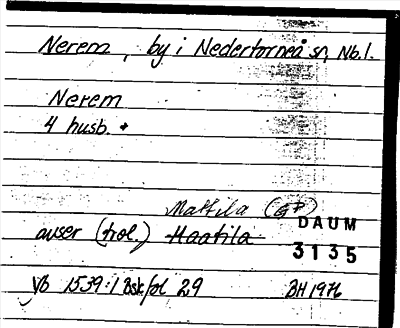 Nerem, by i Nedertorneå sn, Nb.l.
Nerem
4 husb. +
Mattila (GP)
avser (trol.) Haatila
DAUM
3135
yb 1539:1 Bsk/ol 29
BH 1976